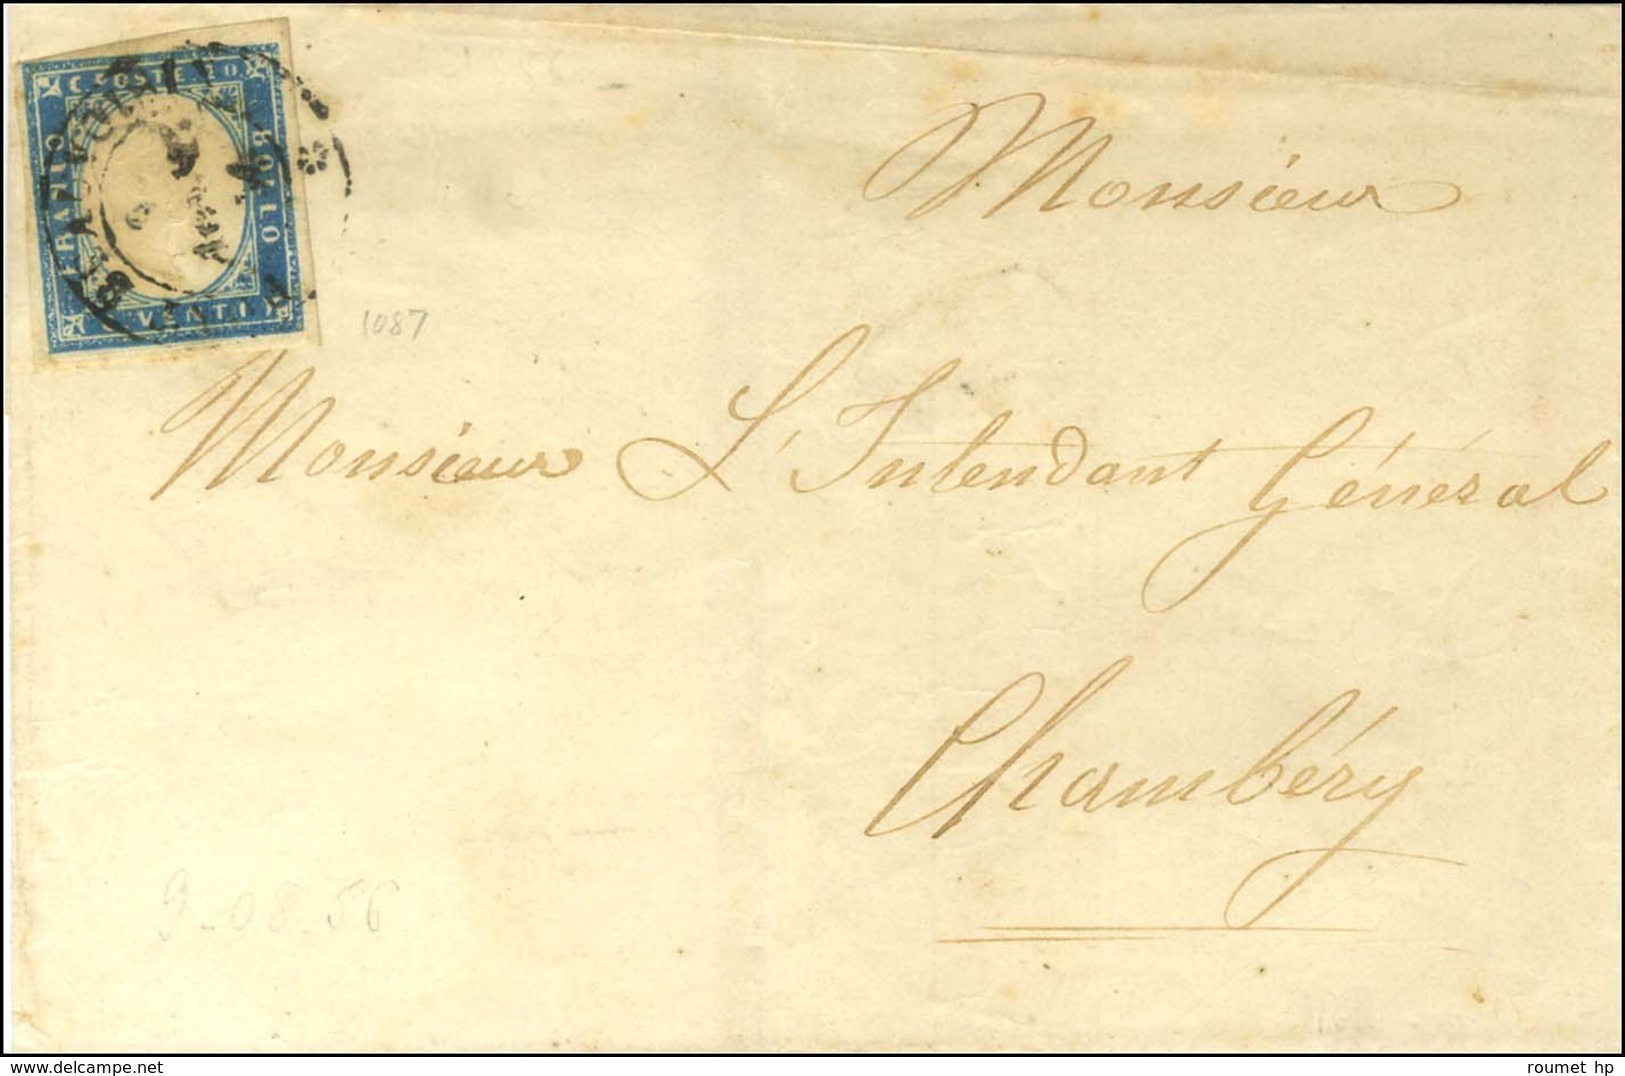 C. POSTE 20
FRANCO
BOLLO
VENTI
1087
Monsieur
Monsieur L'Intendant Général
Chambéry
9-08-56
roumet hp